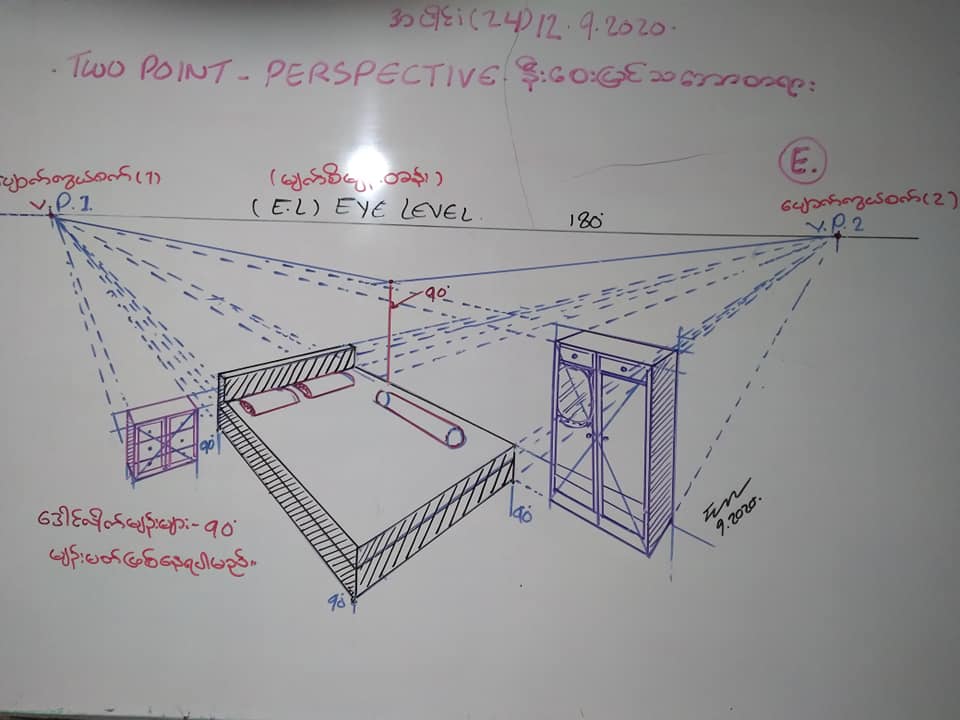 အပိုင်း (24) 12.9.2020.
. TWO POINT - PERSPECTIVE နီးဝေးမြင်သဘောတရား
E.
ပျောက်ကွယ်မှတ် (1)
V.P.1
(မျက်စိမျှ တန်း)
(E.L) EYE LEVEL.
180°
ပျောက်ကွယ်မှတ် (2)
V.P.2
90°
90°
90°
90°
ဒေါင်လိုက်မျဉ်းများ - 90°
မျဉ်းမတ်ဖြစ်နေရပါမည်။
9.2020.